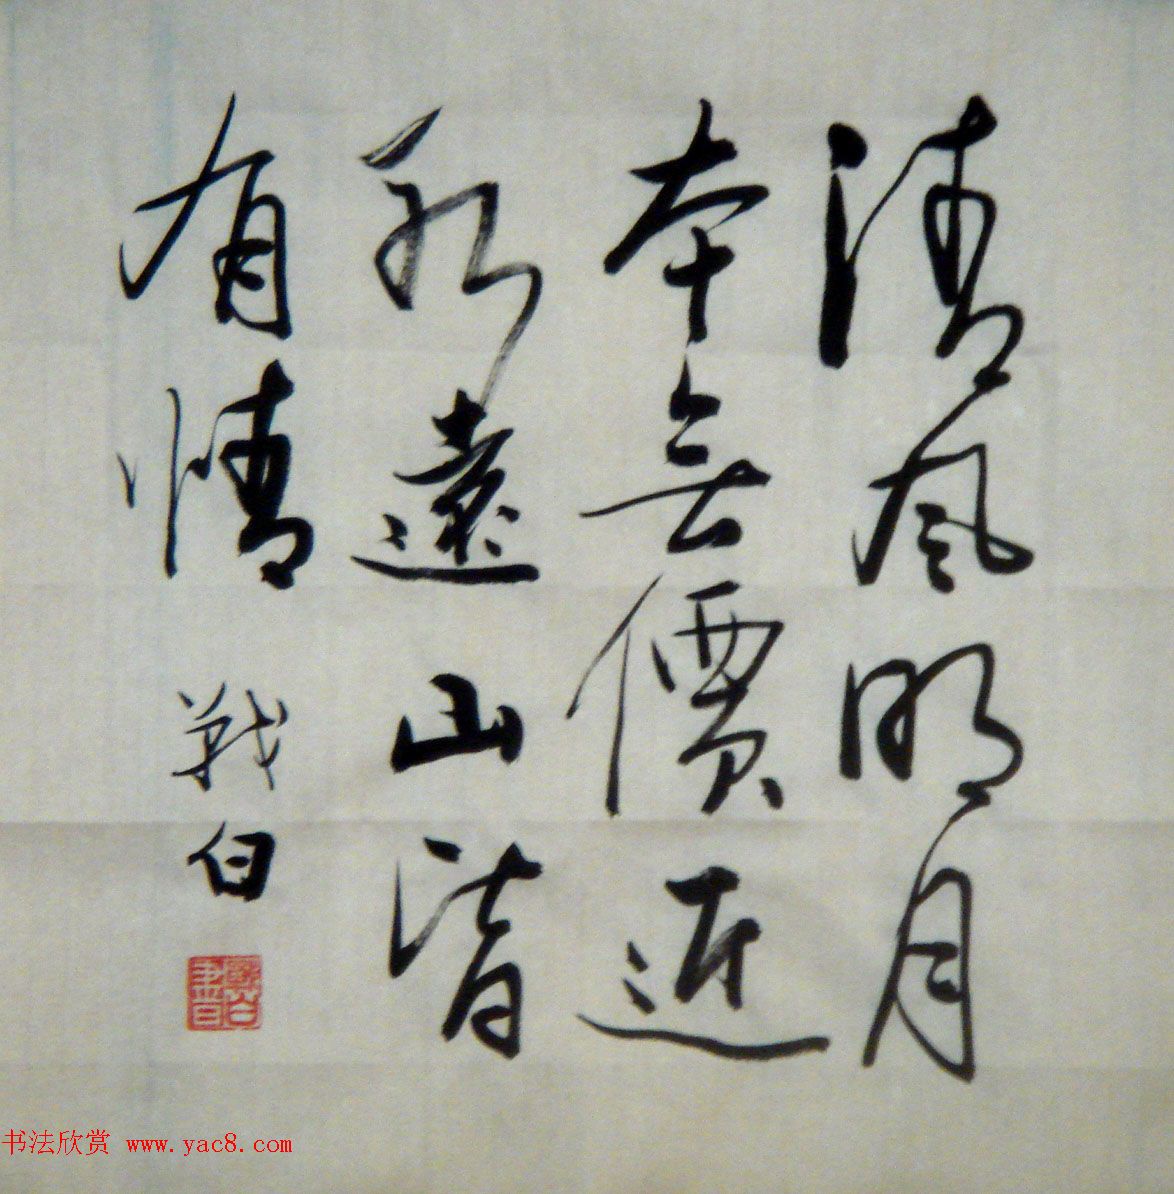 清風明月
本無價近
水遠山皆
有情
戰白
书法欣赏 www.yac8.com